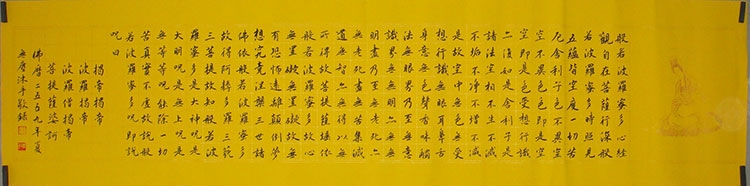 般若波羅蜜多心經
觀自在菩薩行深般
若波羅蜜多時照見
五蘊皆空度一切苦
厄舍利子色不異空
空不異色色即是空
空即是色受想行識
亦復如是舍利子是
諸法空相不生不滅
不垢不淨不增不減
是故空中無色無受
想行識無眼耳鼻舌
身意無色聲香味觸
法無眼界乃至無意
識界無無明亦無無
明盡乃至無老死亦
無老死盡無苦集滅
道無智亦無得以無
所得故菩提薩埵依
般若波羅蜜多故心
無罣礙無罣礙故無
有恐怖遠離顛倒夢
想究竟涅槃三世諸
佛依般若波羅蜜多
故得阿耨多羅三藐
三菩提故知般若波
羅蜜多是大神呪是
大明呪是無上呪是
無等等呪能除一切
苦真實不虛故說般
若波羅蜜多呪即說
呪曰
揭帝揭帝
波羅揭帝
波羅僧揭帝
菩提薩婆訶
佛曆二五五九年夏
無塵沐手敬錄